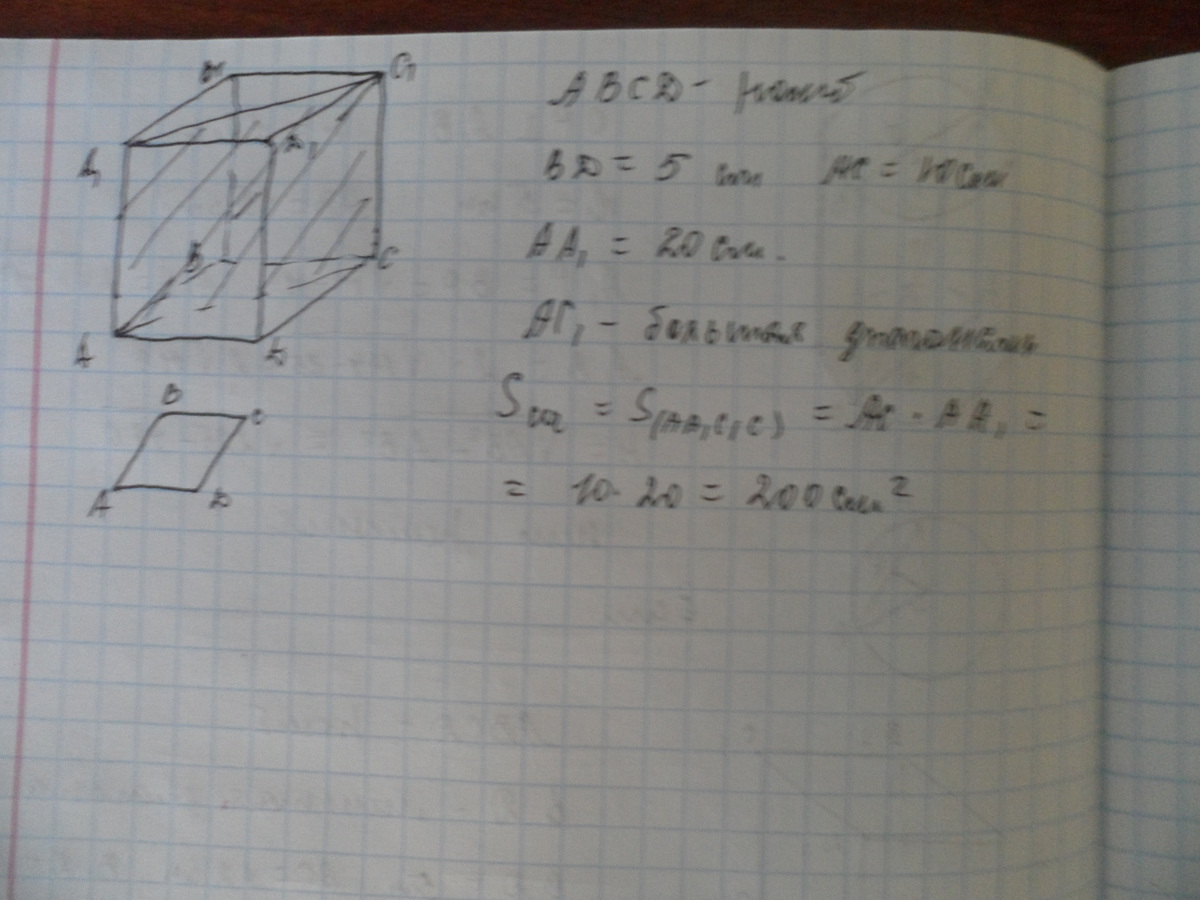 B1 C1
A1 D1
B C
A D
B C
A D
ABCD - ромб
BD = 5 см AC = 10 см
AA1 = 20 см.
AC1 - большая диагональ
S = S(AA1C1C) = AC · AA1 =
= 10 · 20 = 200 см²